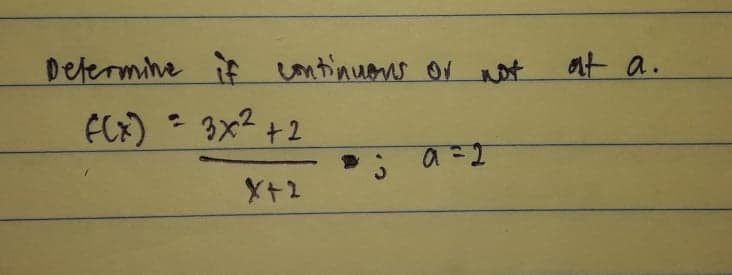 Determine if continuous or not at a.
f(x) = 3x² + 2
; a = 2
x + 2